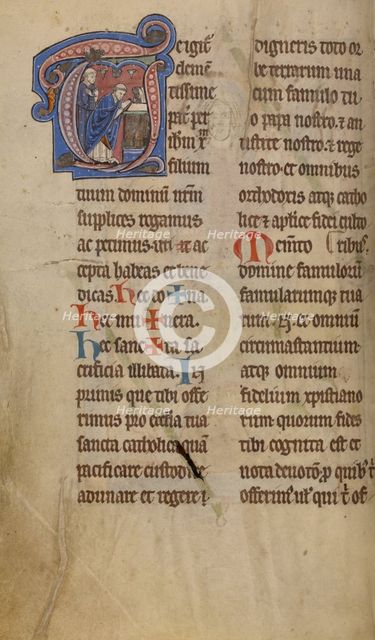 e igit̾
clemē
tissime
pat̾ per
ihm xpm
filium
tuum dominū nr̄m
supplices rogamus
ac petimus uti ac
cepta habeas et bene
dicas. hec do✝na
hec mu✝nera.
hec sanc✝ta sa
crificia illibata. In
primis que tibi offe
rimus pro eccl̄a tua
sancta catholica quā
pacificare custodire
adunare et regere
digneris toto or
be terrarum una
cum famulo tu
o papa nostro. et an
tistite nostro. et rege
nostro. et omnibus
orthodoxis atq; catho
lice et aplice fidei culto
Memēto ribus.
domine famulorū
famularumque tua
rum. N. et omniū
circumstantium.
atq; omnium
fidelium xpistiano
rum quorum fides
tibi cognita est et
nota deuotio. p quib;
offerim; ul̾ qui t̄ of
Heritage
Heritage
Heritage
Heritage
Heritage
Heritage
©